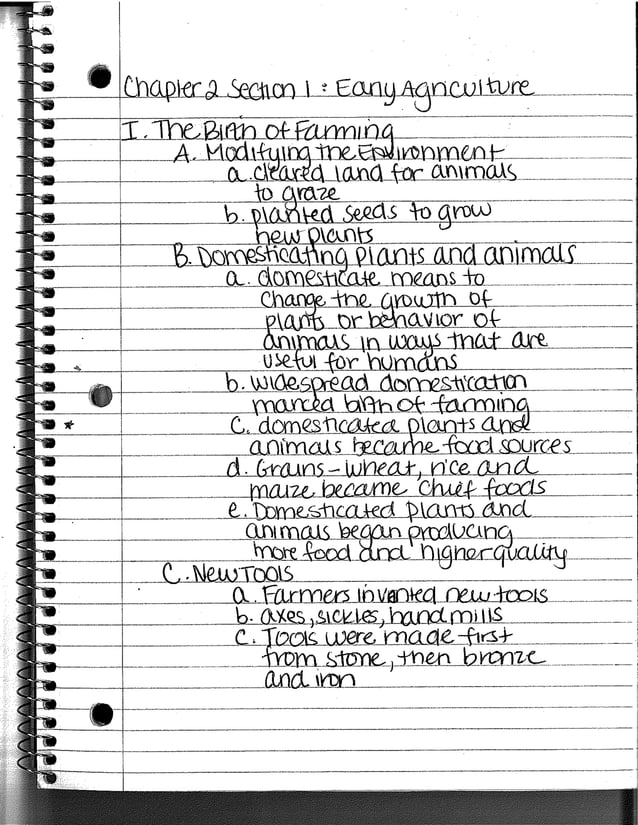 Chapter 2 Section 1: Early Agriculture
I. The Birth of Farming
A. Modifying the Environment
a. cleared land for animals
to graze
b. planted seeds to grow
new plants
B. Domesticating plants and animals
a. domesticate means to
change the growth of
plants or behavior of
animals in ways that are
useful for humans
b. widespread domestication
marced birth of farming
* C. domesticated plants and
animals became food sources
d. Grains - wheat, rice and
maize became chief foods
e. Domesticated plants and
animals began producing
more food and higher quality
C. New Tools
a. Farmers invented new tools
b. axes, sickles, hand mills
c. Tools were made first
from stone, then bronze
and iron